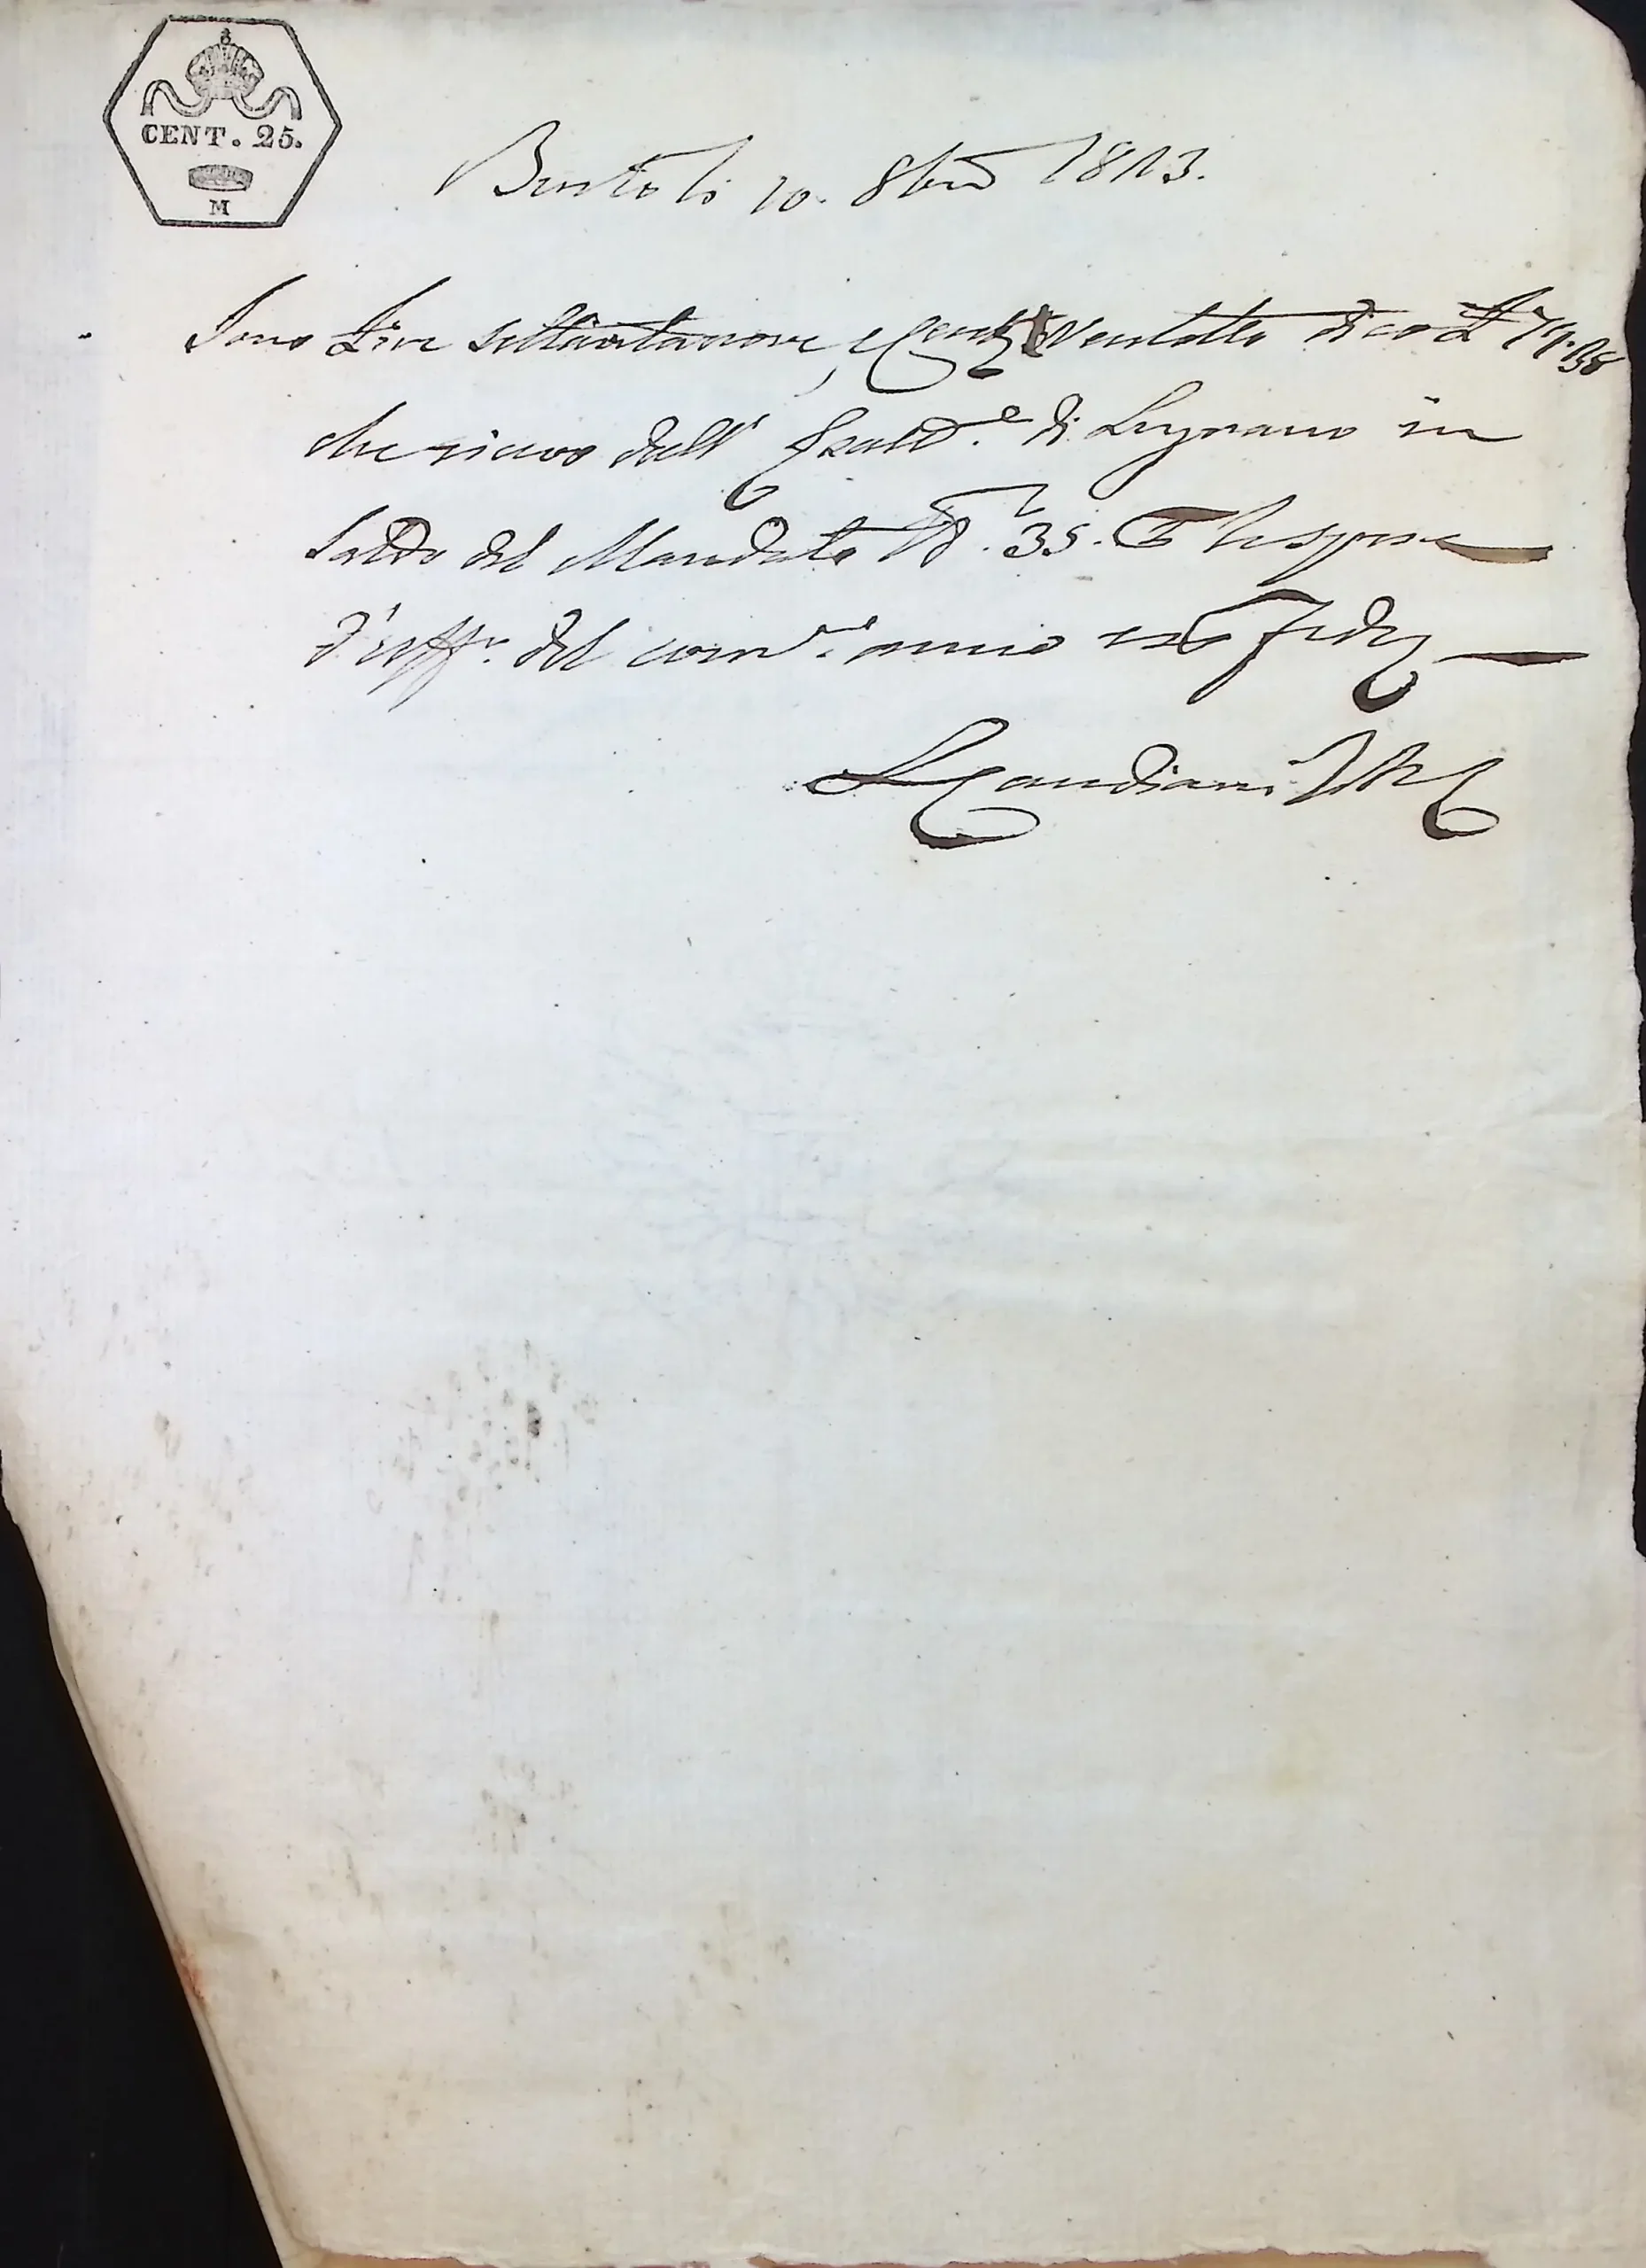 CENT. 25.
M
Busto li 10. 8bre 1813.
Sono Lire settantanove, e Cent. Ventotto dico L 79.28
che ricevo dall' di Legnano in
Saldo del Mandato N.° 35. spese
d'uff.° del corr.e anno in Fede
Candiani